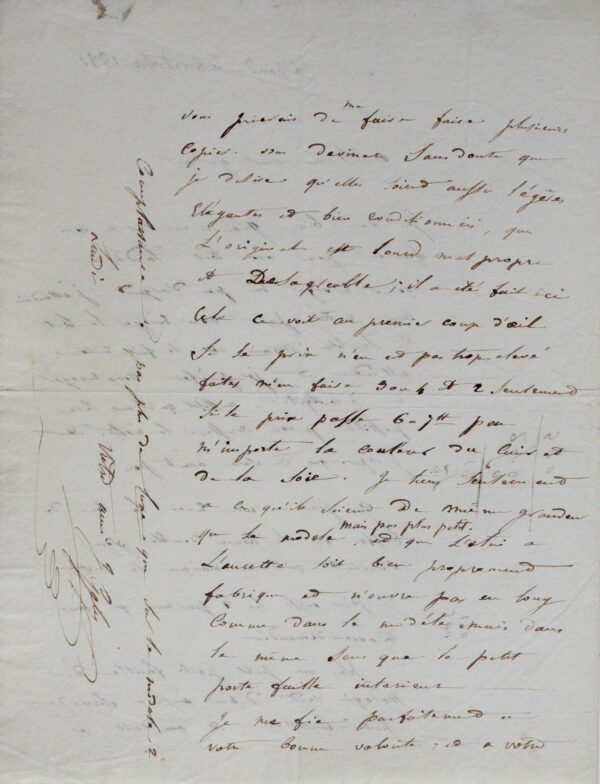 vous prierais de me faire faire plusieurs
copies. vous devinez sans doute que
je desire qu'elles soient aussi légères
Elégantes et bien conditionnées, que
L'original est lourd mal propre
et Desagréable; il a été fait ici
Cela ce voit au premier coup d'œil
Si le prix n'en est pas trop elevé
faites m'en faire 3 ou 4 et 2 seulement
Si le prix passe 6 a 7tt peu
n'importe la couleur du Cuir et
de la Soie. Je tiens seulement
a ce qu'ils soient de même grandeur
que le modele, mais pas plus petit. et que L'étui a
Lancette soit bien proprement
fabriqué et n'ouvre pas en long
Comme dans le modéle mais dans
le même sens que le petit
porte feuille interieur
Je me fie parfaitement a
votre bonne volonté; et a votre
Complaisance; pas plus de luxe que sur le modele 2
Lundi
Votre ami